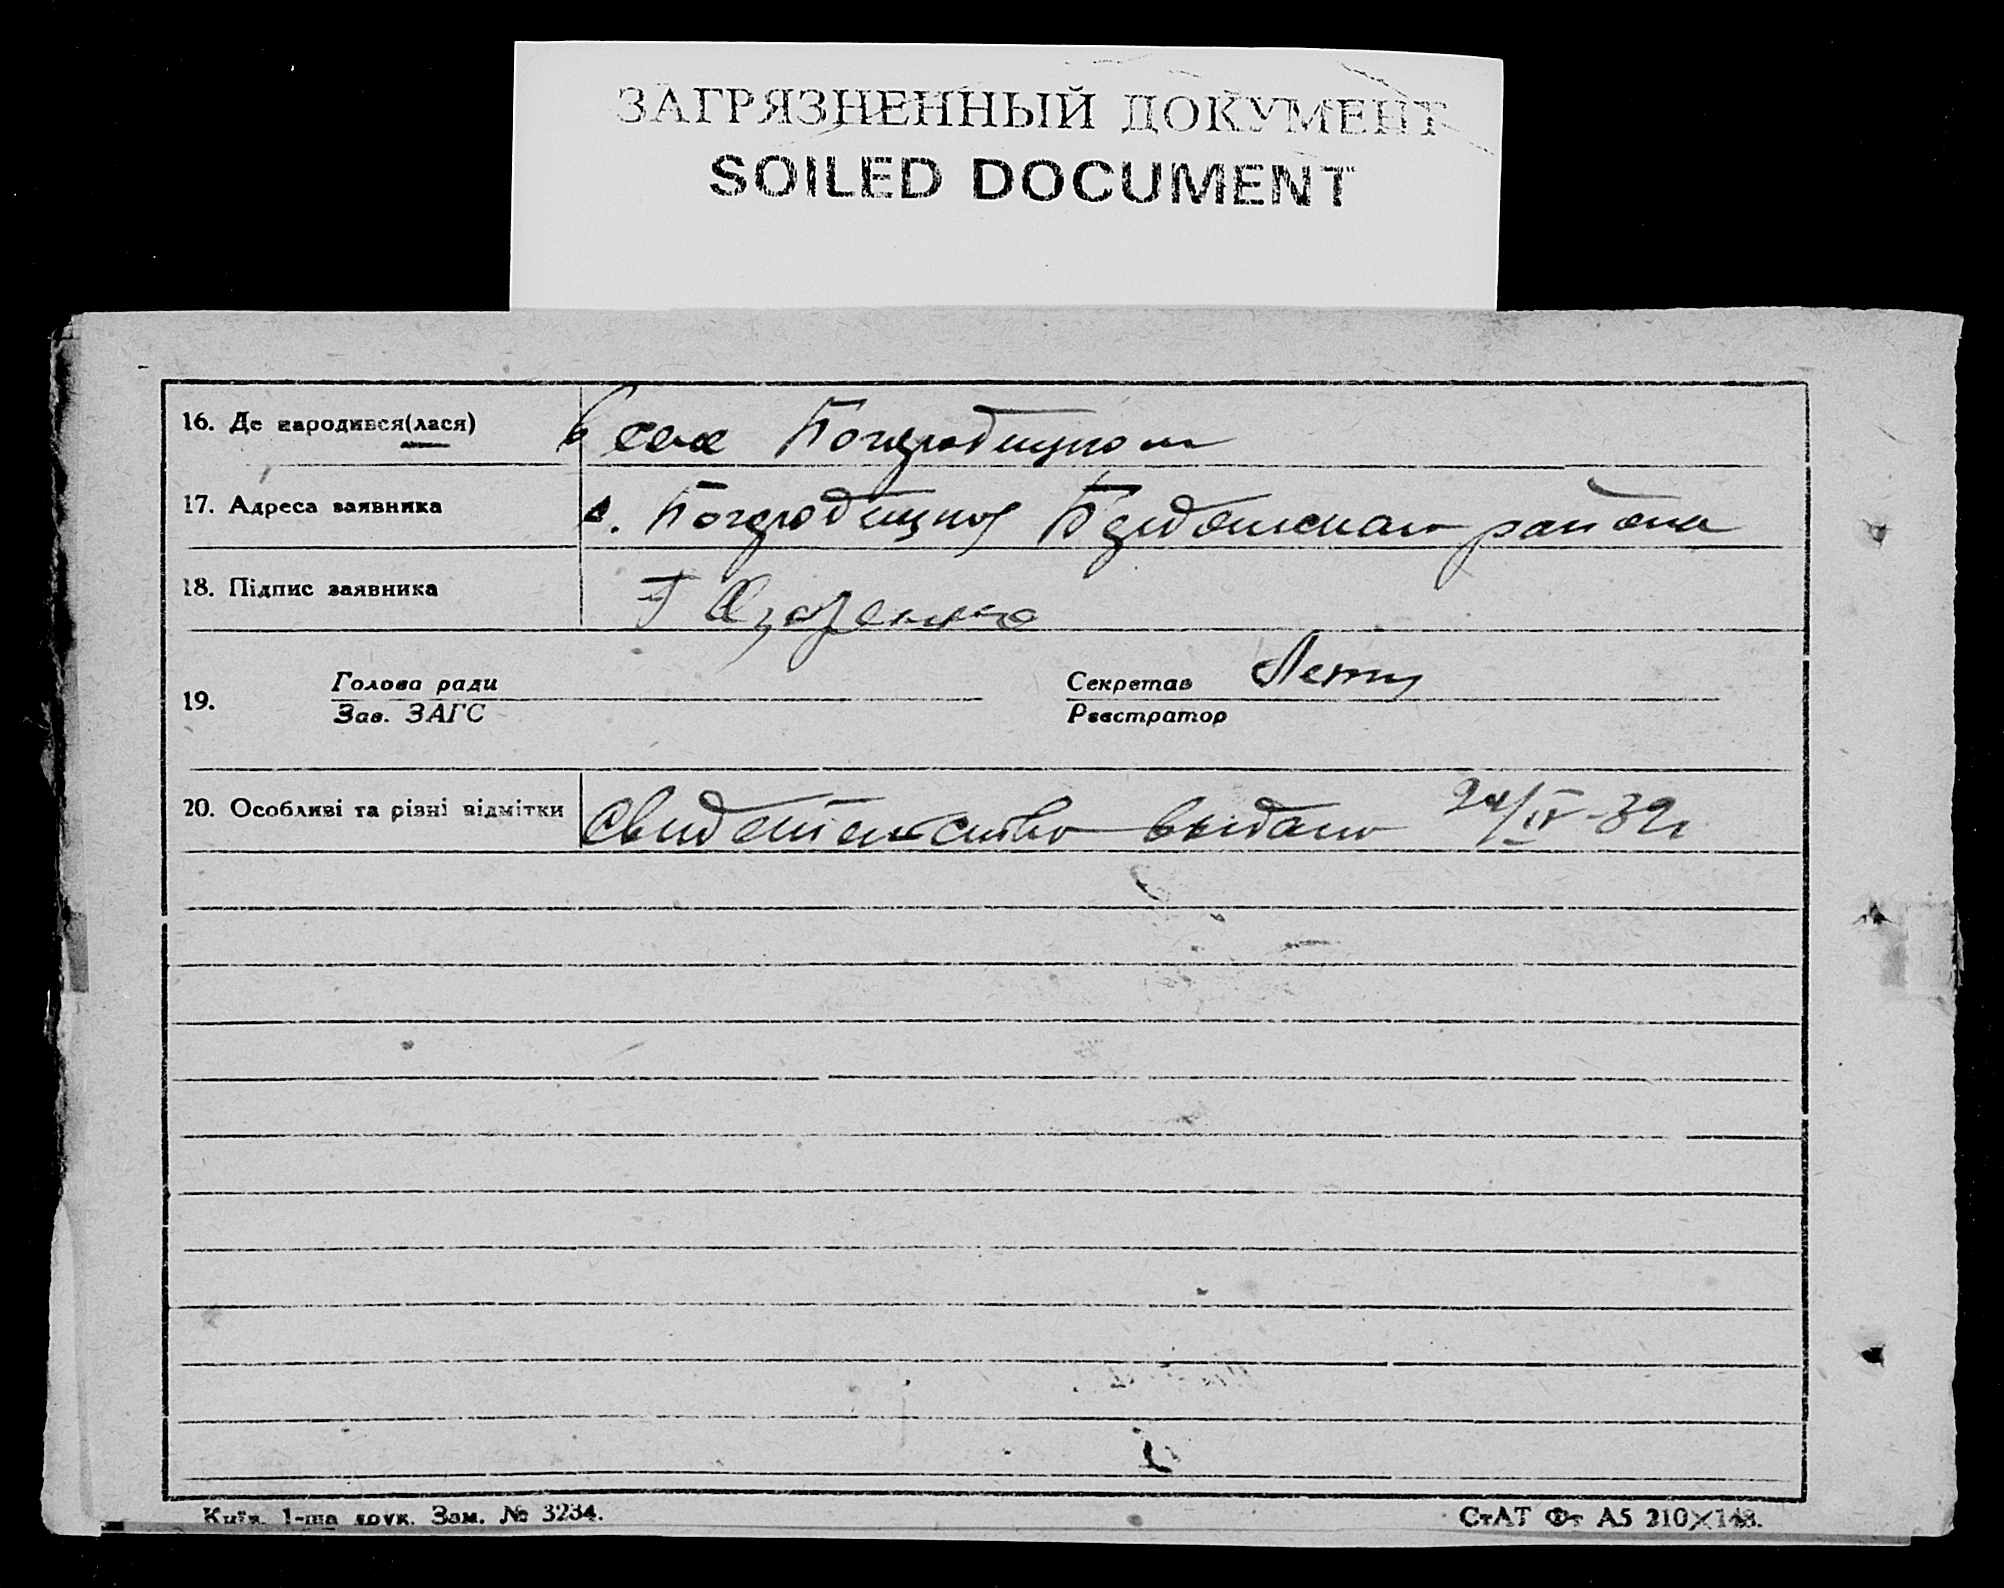 ЗАГРЯЗНЕННЫЙ ДОКУМЕНТ
SOILED DOCUMENT
16. Де народився(лася)
в селе
17. Адреса заявника
с. района
18. Підпис заявника
19.
Голова ради
Зав. ЗАГС
Секретар
Реєстратор
20. Особливі та різні відмітки
Свидетельство выдано 24/IV-32г
Київ. 1-ша друк. Зам. № 3234.
СтАТ Фт А5 210×148.